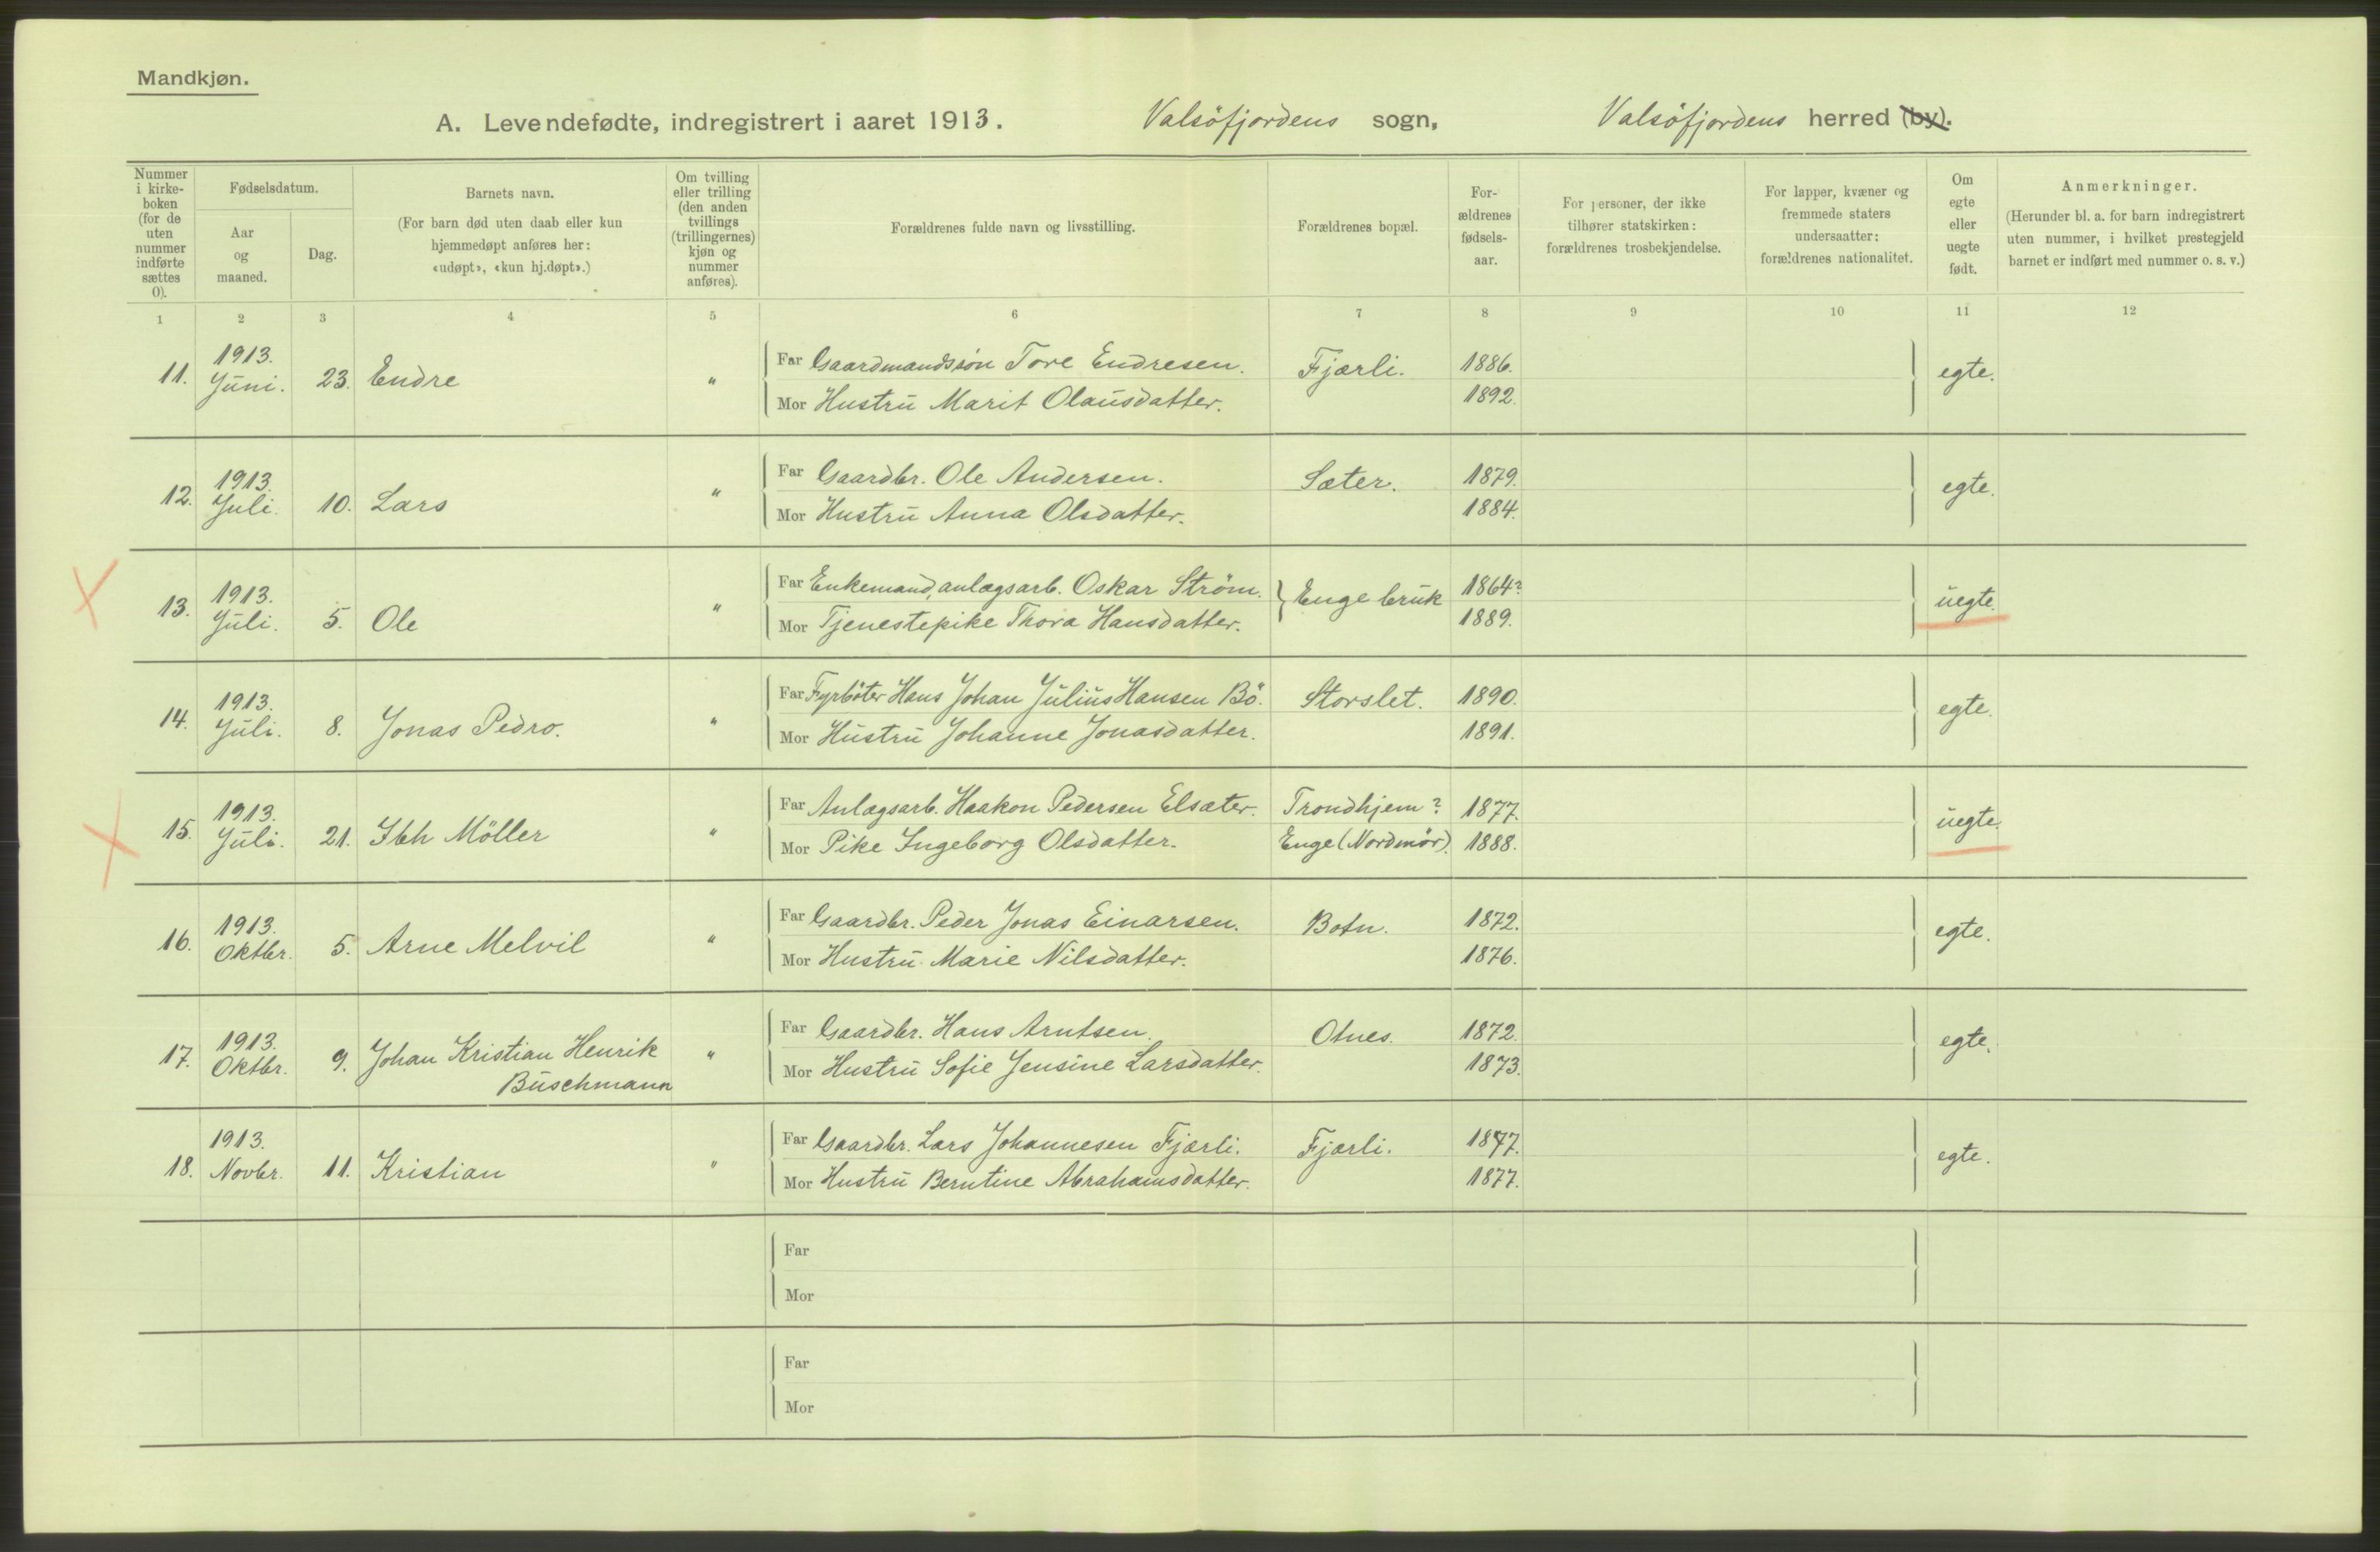 Mandkjøn.
A. Levendefødte, indregistrert i aaret 1913. Valsöfjordens sogn, Valsöfjordens herred (by).
Nummer i kirke-boken (for de uten nummer indførte sættes 0).
Fødselsdatum.
Aar og maaned.
Dag.
Barnets navn.
(For barn død uten daab eller kun hjemmedøpt anføres her: «udøpt», «kun hj.døpt».)
Om tvilling eller trilling (den anden tvillings (trillingernes) kjøn og nummer anføres).
Forældrenes fulde navn og livsstilling.
Forældrenes bopæl.
For-ældrenes fødsels-aar.
For personer, der ikke tilhører statskirken: forældrenes trosbekjendelse.
For lapper, kvæner og fremmede staters undersaatter: forældrenes nationalitet.
Om egte eller uegte født.
Anmerkninger.
(Herunder bl. a. for barn indregistrert uten nummer, i hvilket prestegjeld barnet er indført med nummer o. s. v.)
1 2 3 4 5 6 7 8 9 10 11 12
11. 1913. Juni. 23. Endre " Far Gaardmandssön Tore Endresen. Fjærli. 1886. egte.
Mor Hustru Marit Olausdatter. 1892.
12. 1913. Juli. 10. Lars " Far Gaardbr. Ole Andersen. Sæter. 1879. egte.
Mor Hustru Anna Olsdatter. 1884.
13. 1913. Juli. 5. Ole " Far Enkemand, anlægsarb. Oskar Ström. Enge bruk 1864? uegte.
Mor Tjenestepike Thora Hansdatter. 1889.
14. 1913. Juli. 8. Jonas Pedro. " Far Fyrböter Hans Johan Julius Hansen Bö. Storslet. 1890. egte.
Mor Hustru Johanne Jonasdatter. 1891.
15. 1913. Juli. 21. Ibh Möller " Far Anlægsarb. Haakon Pedersen Elsæter. Trondhjem? 1877. uegte.
Mor Pike Ingeborg Olsdatter. Enge (Nordmör). 1888.
16. 1913. Oktbr. 5. Arne Melvil " Far Gaardbr. Peder Jonas Einarsen. Botn. 1872. egte.
Mor Hustru Marie Nilsdatter. 1876.
17. 1913. Oktbr. 9. Johan Kristian Henrik Buschmann " Far Gaardbr. Hans Arntsen. Otnes. 1872. egte.
Mor Hustru Sofie Jensine Larsdatter. 1873.
18. 1913. Novbr. 11. Kristian " Far Gaardbr. Lars Johannesen Fjærli. Fjærli. 1877. egte.
Mor Hustru Berntine Abrahamsdatter. 1877.
Far
Mor
Far
Mor